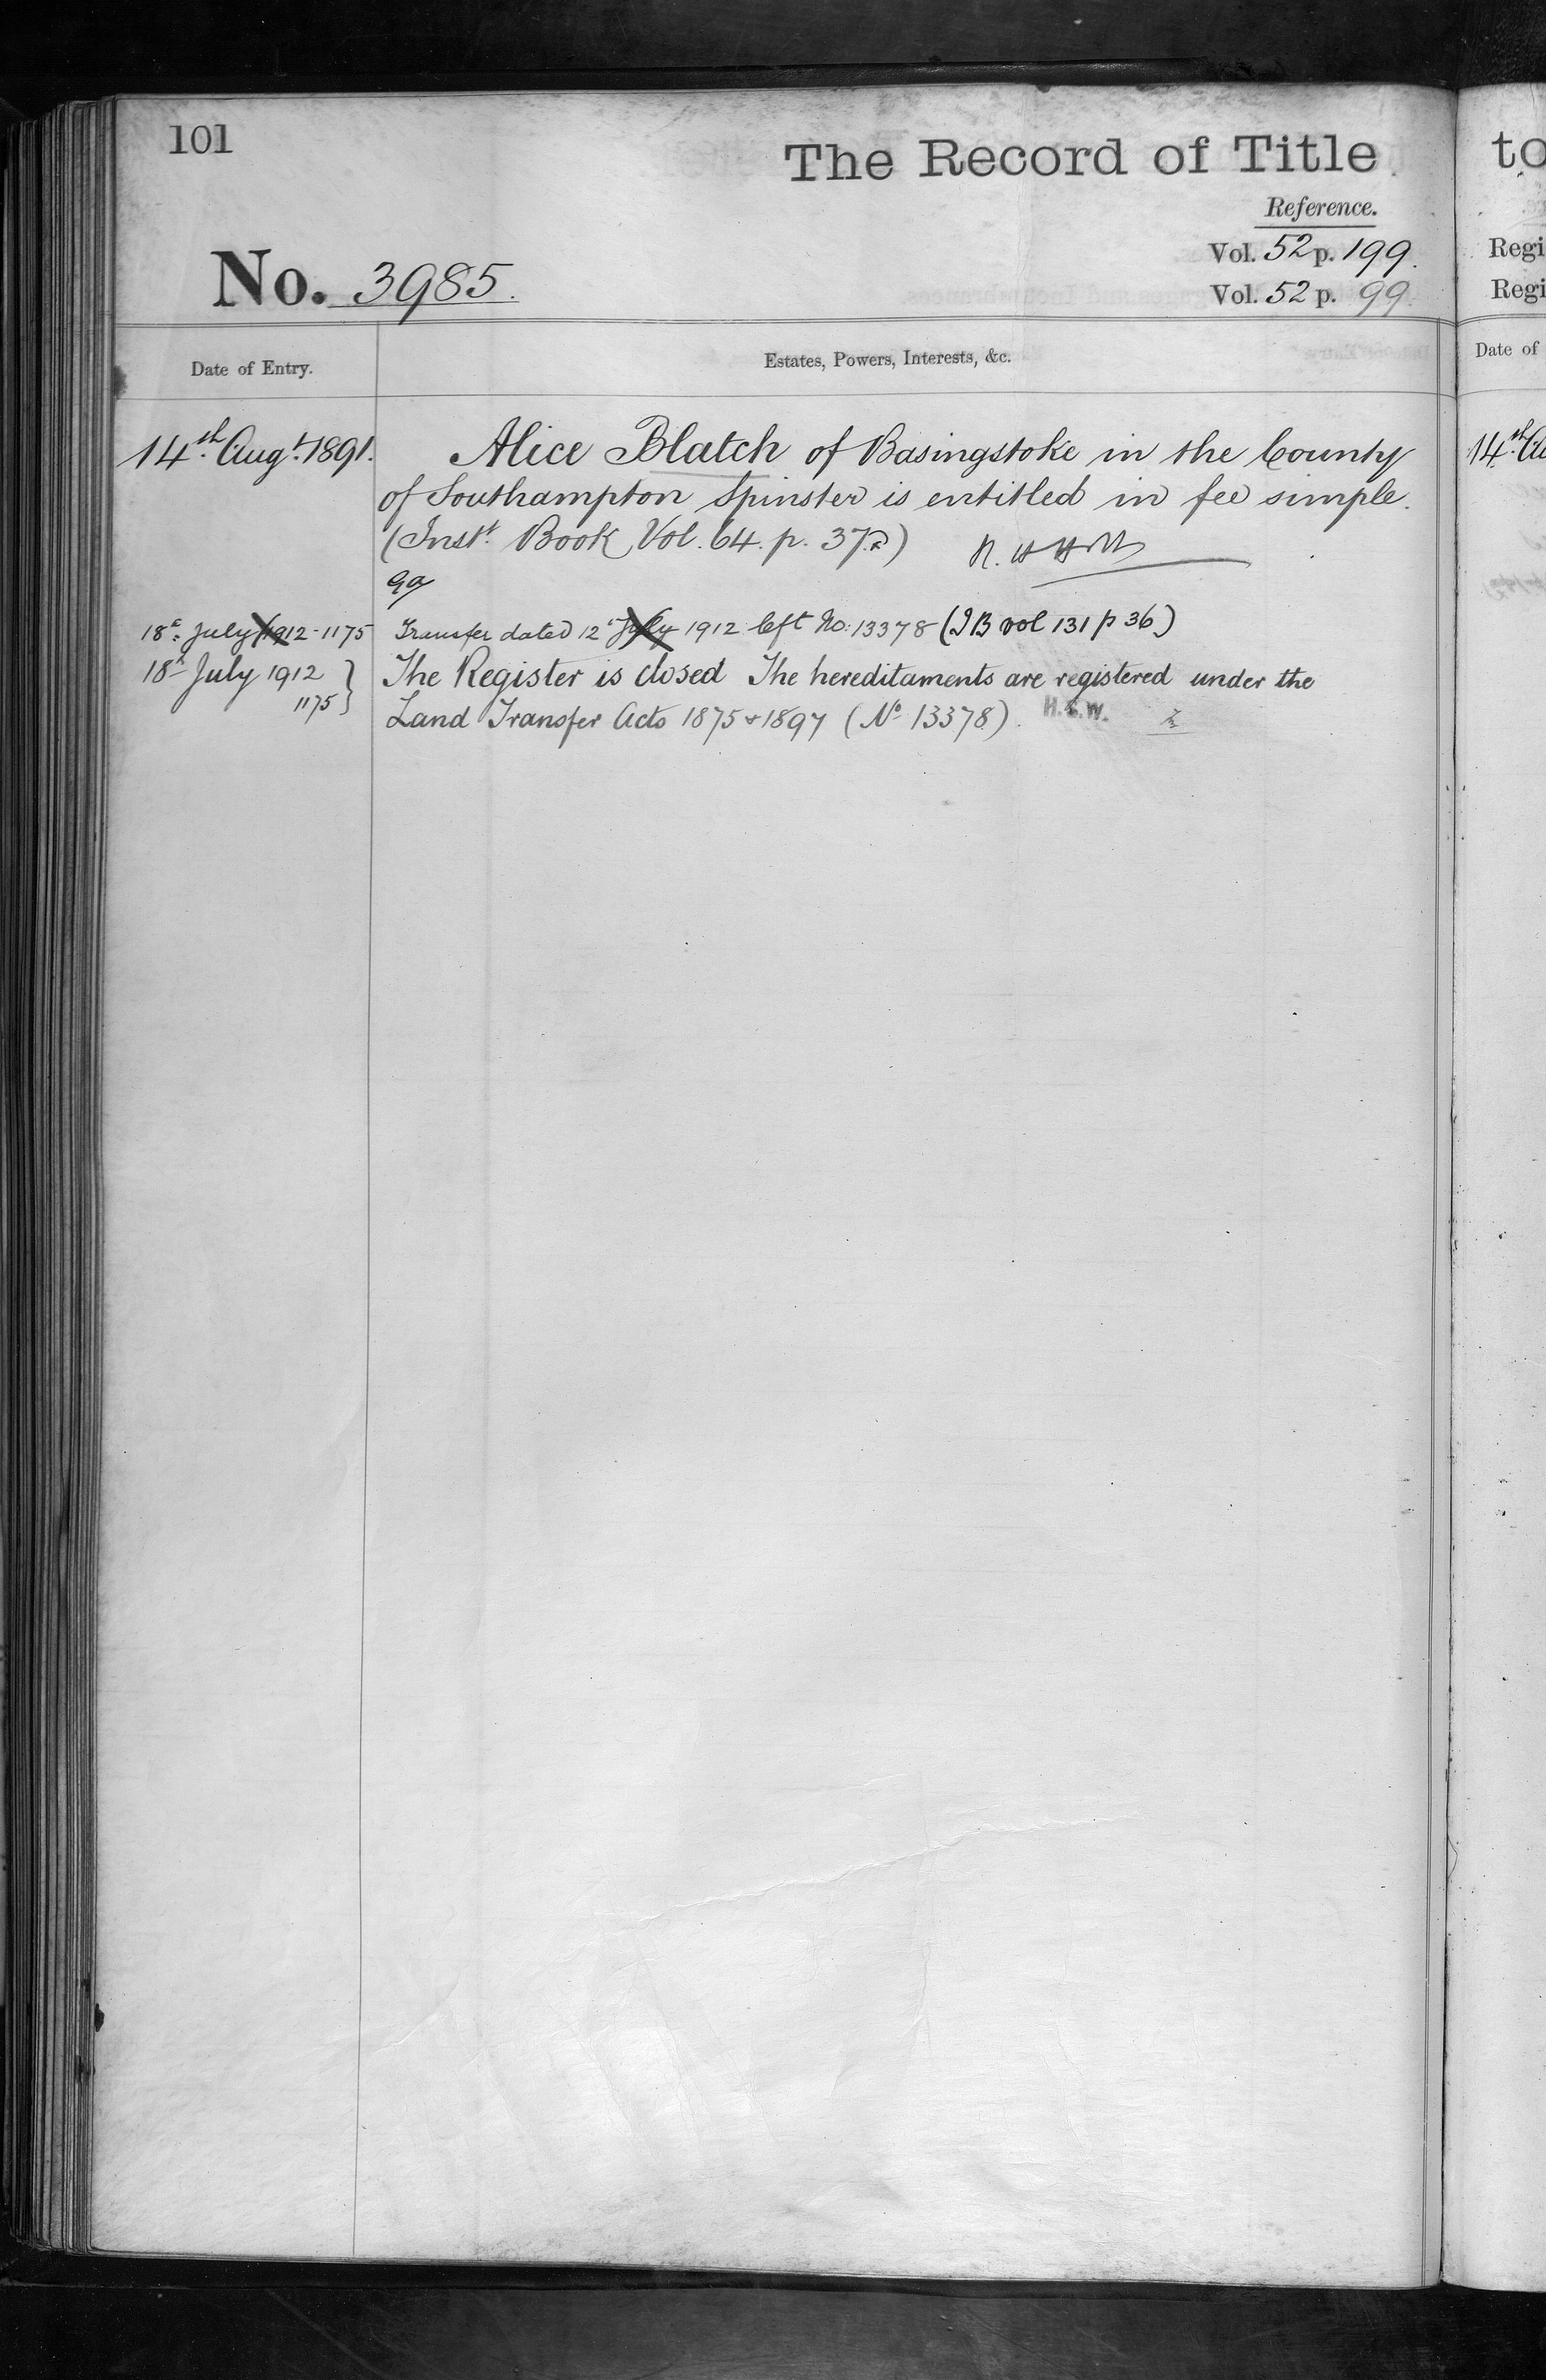 101
The Record of Title
Reference.
Vol. 52 p. 199.
No. 3985.
Vol. 52 p. 99.
Date of Entry.
Estates, Powers, Interests, &c.
14th Augt. 1891.
Alice Blatch of Basingstoke in the County
of Southampton Spinster is entitled in fee simple.
(Inst. Book Vol. 64. p. 37.)
18th July 1912 - 1175
Transfer dated 12th July 1912 left No. 13378 (IB vol 131 p 36)
18th July 1912 }
1175
The Register is closed The hereditaments are registered under the
Land Transfer Acts 1875 & 1897 (No 13378). H.S.W.
to
Regi
Regi
Date of
14th Au